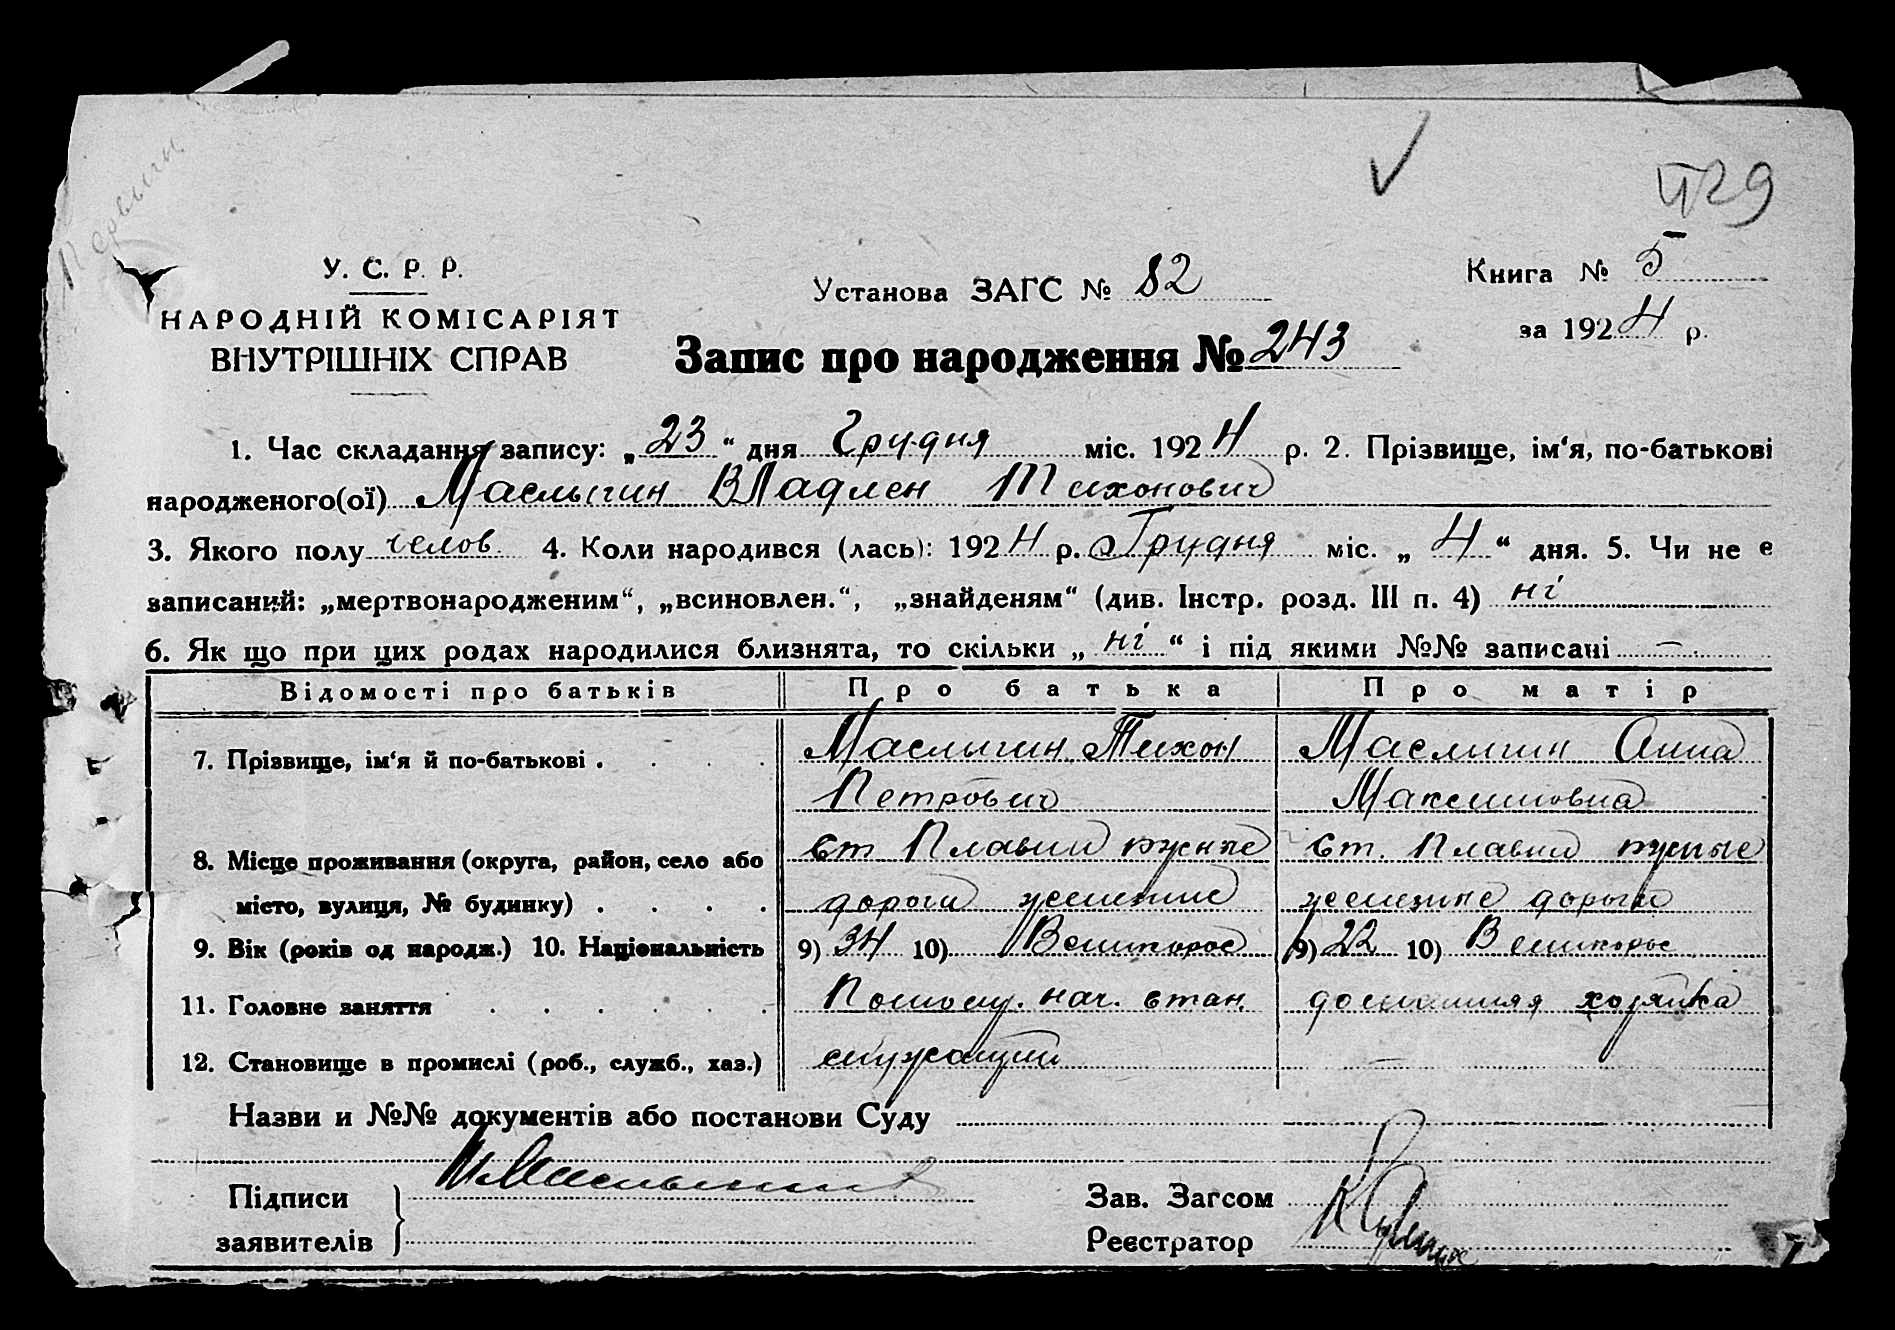 29
У. С. Р. Р.
НАРОДНІЙ КОМІСАРІЯТ
ВНУТРІШНІХ СПРАВ
Установа ЗАГС № 82
Книга № 5
за 1924 р.
Запис про народження № 243
1. Час складання запису: „23“ дня Грудня міс. 1924 р. 2. Прізвище, ім‘я, по-батькові
народженого(ої) Маслыгин Владлен Тихонович
3. Якого полу челов. 4. Коли народився (лась): 1924 р. Грудня міс. „4“ дня. 5. Чи не є
записаний: „мертвонародженим“, „всиновлен.“, „знайденям“ (див. Інстр. розд. III п. 4) ні
6. Як що при цих родах народилися близнята, то скільки „ні“ і під якими №№ записані —
Відомості про батьків Про батька Про матір
7. Прізвище, ім‘я й по-батькові . . . . Маслыгин Тихон Маслыгин Анна
Петрович Максимовна
8. Місце проживання (округа, район, село або ст Плавни южные ст. Плавни южные
місто, вулиця, № будинку) . . . . дороги железные железные дороги
9. Вік (років од народж.) 10. Національність 9) 34 10) Великорос 9) 22 10) Великорос
11. Головне заняття . . . . . . Помощ. нач. стан. домашняя хозяйка
12. Становище в промислі (роб., служб., хаз.) служащий —
Назви и №№ документів або постанови Суду
Підписи
заявителів
Зав. Загсом
Реєстратор